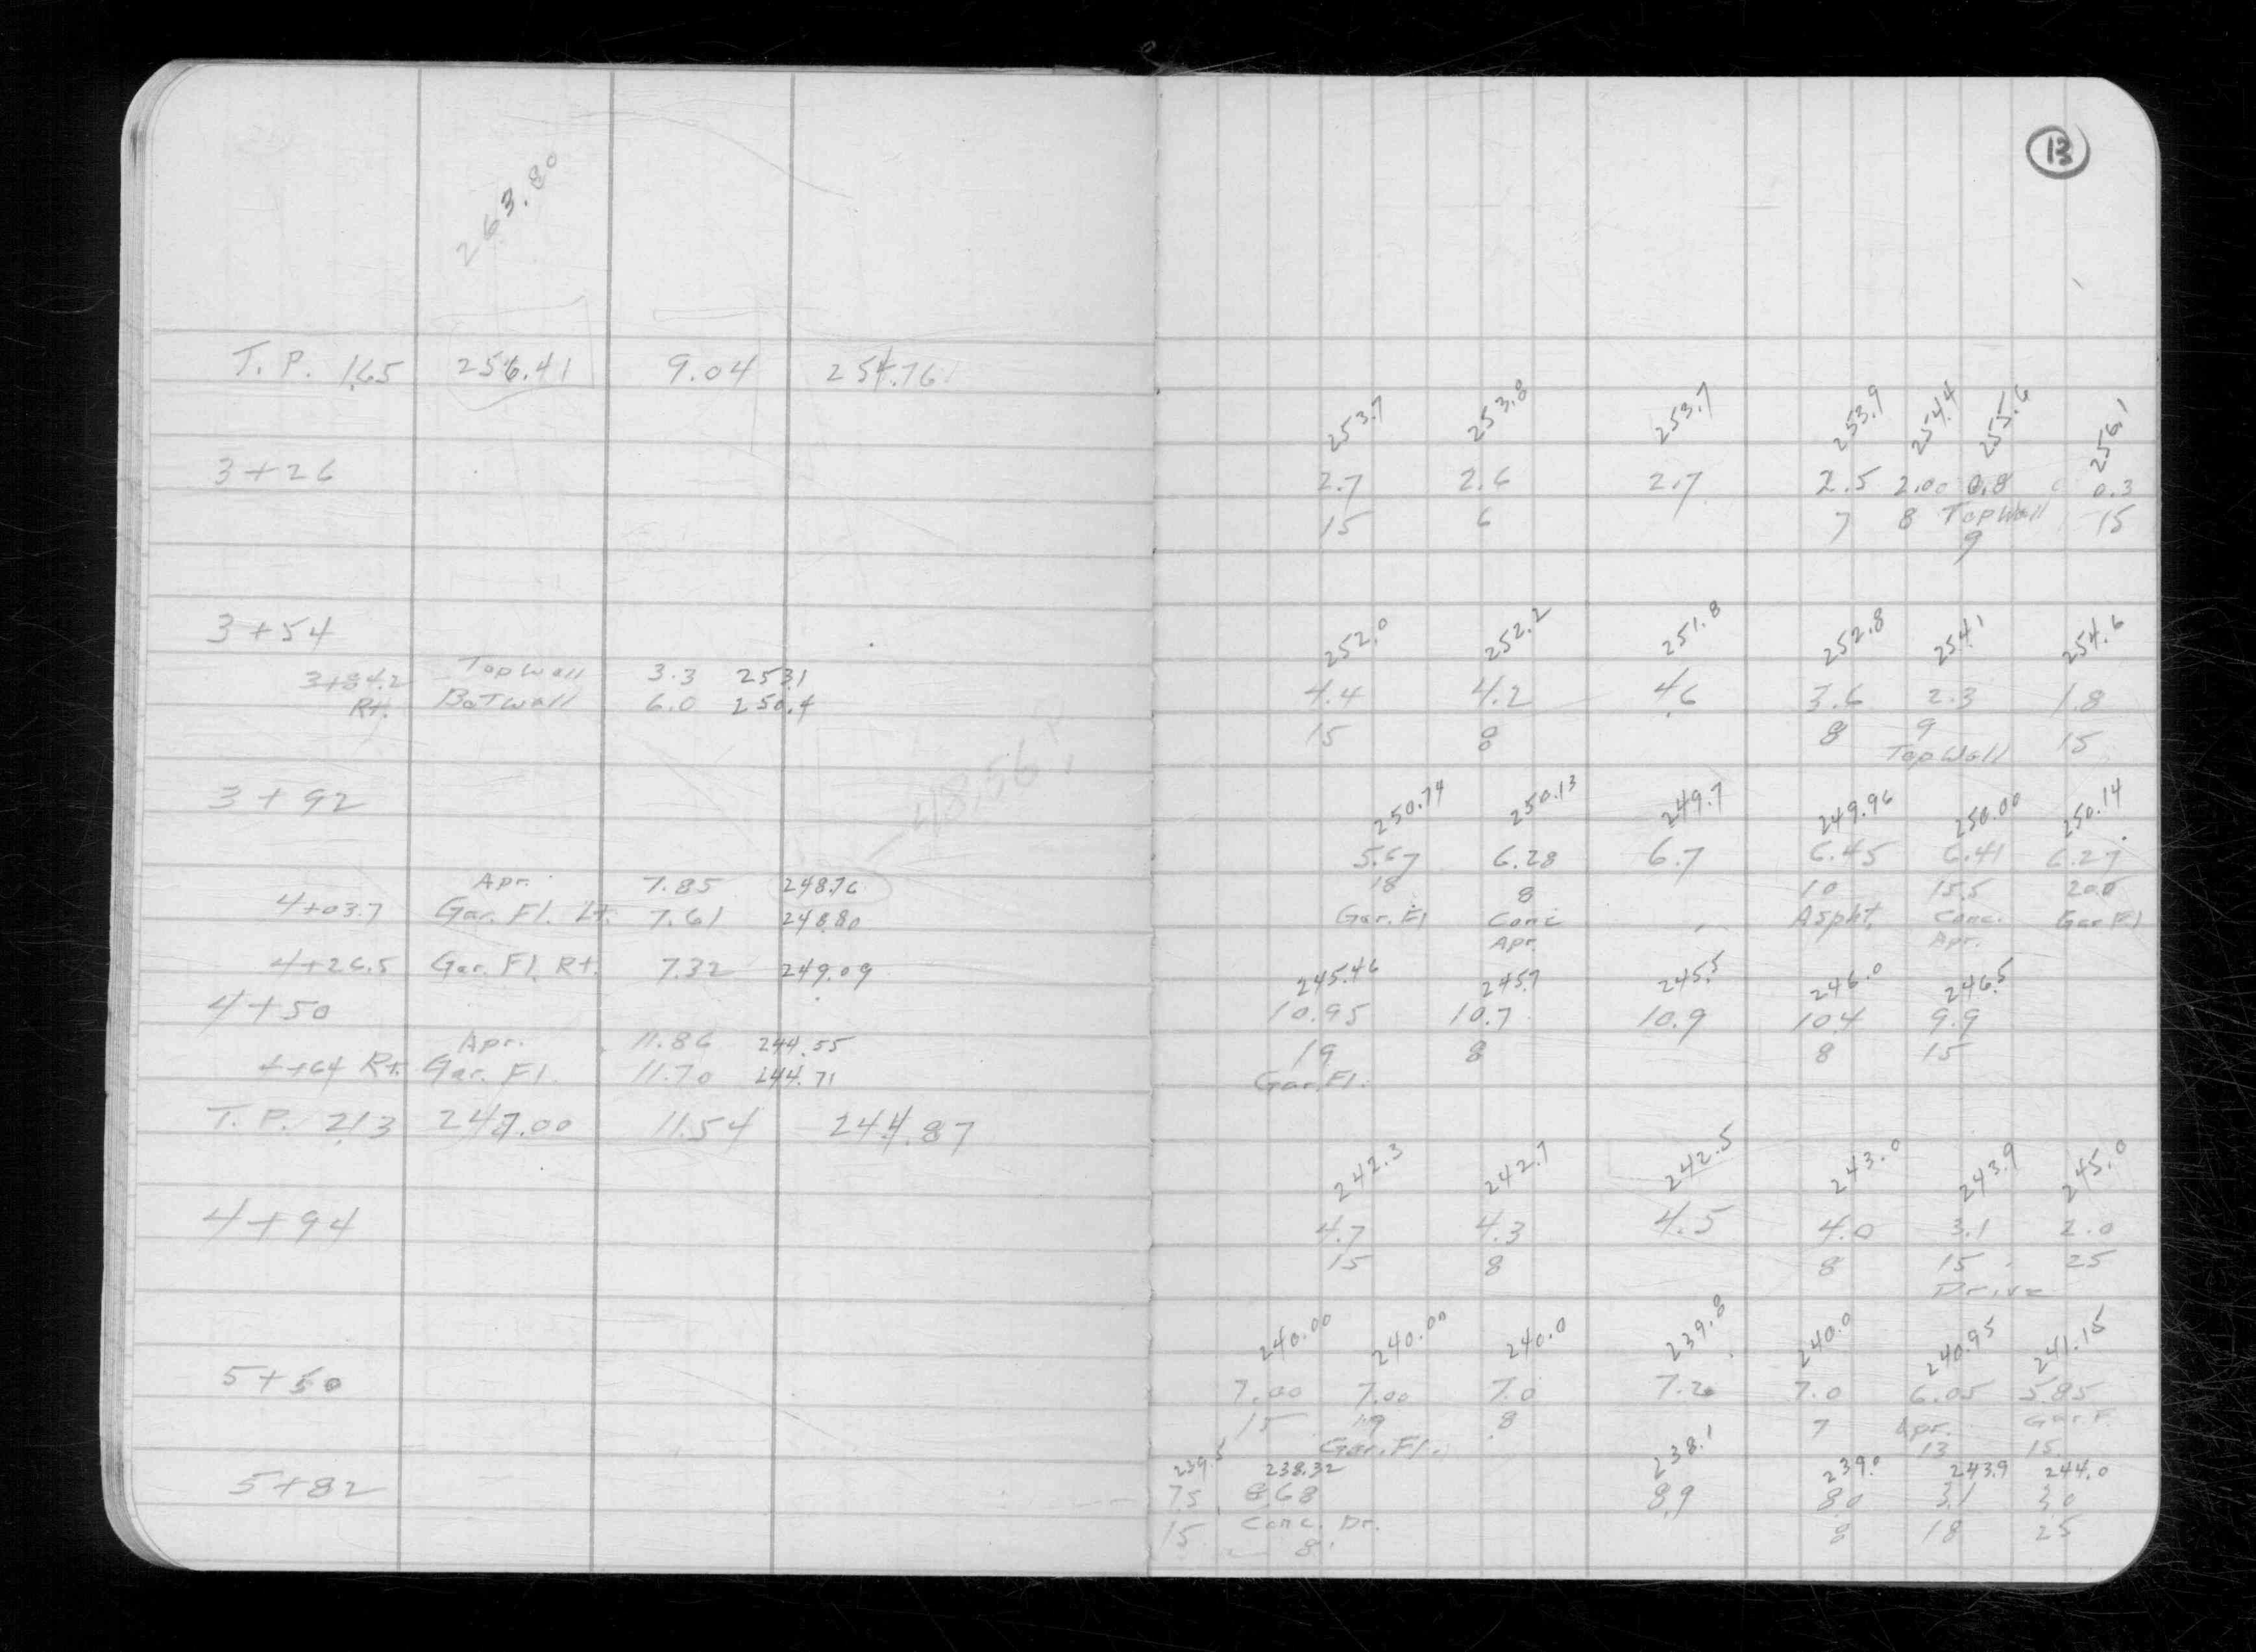 13
263.80
T.P. 1.65 256.41 9.04 254.76
253.7 253.8 253.7 253.9 254.4 255.6 256.1
3+26
2.7 2.6 2.7 2.5 2.00 0.8 0.3
15 6 7 8 Top Wall 15
9
3+54
252.0 252.2 251.8 252.8 254.1 254.6
3+84.2 Top Wall 3.3 253.1
Rt. Bot Wall 6.0 250.4
4.4 4.2 4.6 3.6 2.3 1.8
15 8 8 9 15
Top Wall
48.56
3+92
250.74 250.13 249.7 249.96 250.00 250.14
5.67 6.28 6.7 6.45 6.41 6.27
18 8 10 15.5 20.0
Gar. Fl Conc Aspht. Conc. Gar Fl
Apr. Apr.
Apr. 7.85 248.76
4+03.7 Gar. Fl. Lt. 7.61 248.80
4+26.5 Gar. Fl. Rt. 7.32 249.09
245.46 245.7 245.5 246.0 246.5
4+50
10.95 10.7 10.9 10.4 9.9
19 8 8 15
Gar. Fl.
Apr. 11.86 244.55
4+64 Rt. Gar. Fl. 11.70 244.71
T.P. 2.13 247.00 11.54 244.87
242.3 242.7 242.5 243.0 243.9 245.0
4+94
4.7 4.3 4.5 4.0 3.1 2.0
15 8 8 15 25
Drive
240.00 240.00 240.0 239.8 240.0 240.95 241.15
5+50
7.00 7.00 7.0 7.2 7.0 6.05 5.85
15 19 8 7 Apr. Gar F.
Gar. Fl. 13 15
239.5 238.32 238.1 239.0 243.9 244.0
5+82
7.5 8.68 8.9 8.0 3.1 3.0
15 Conc. Dr. 8 18 25
8